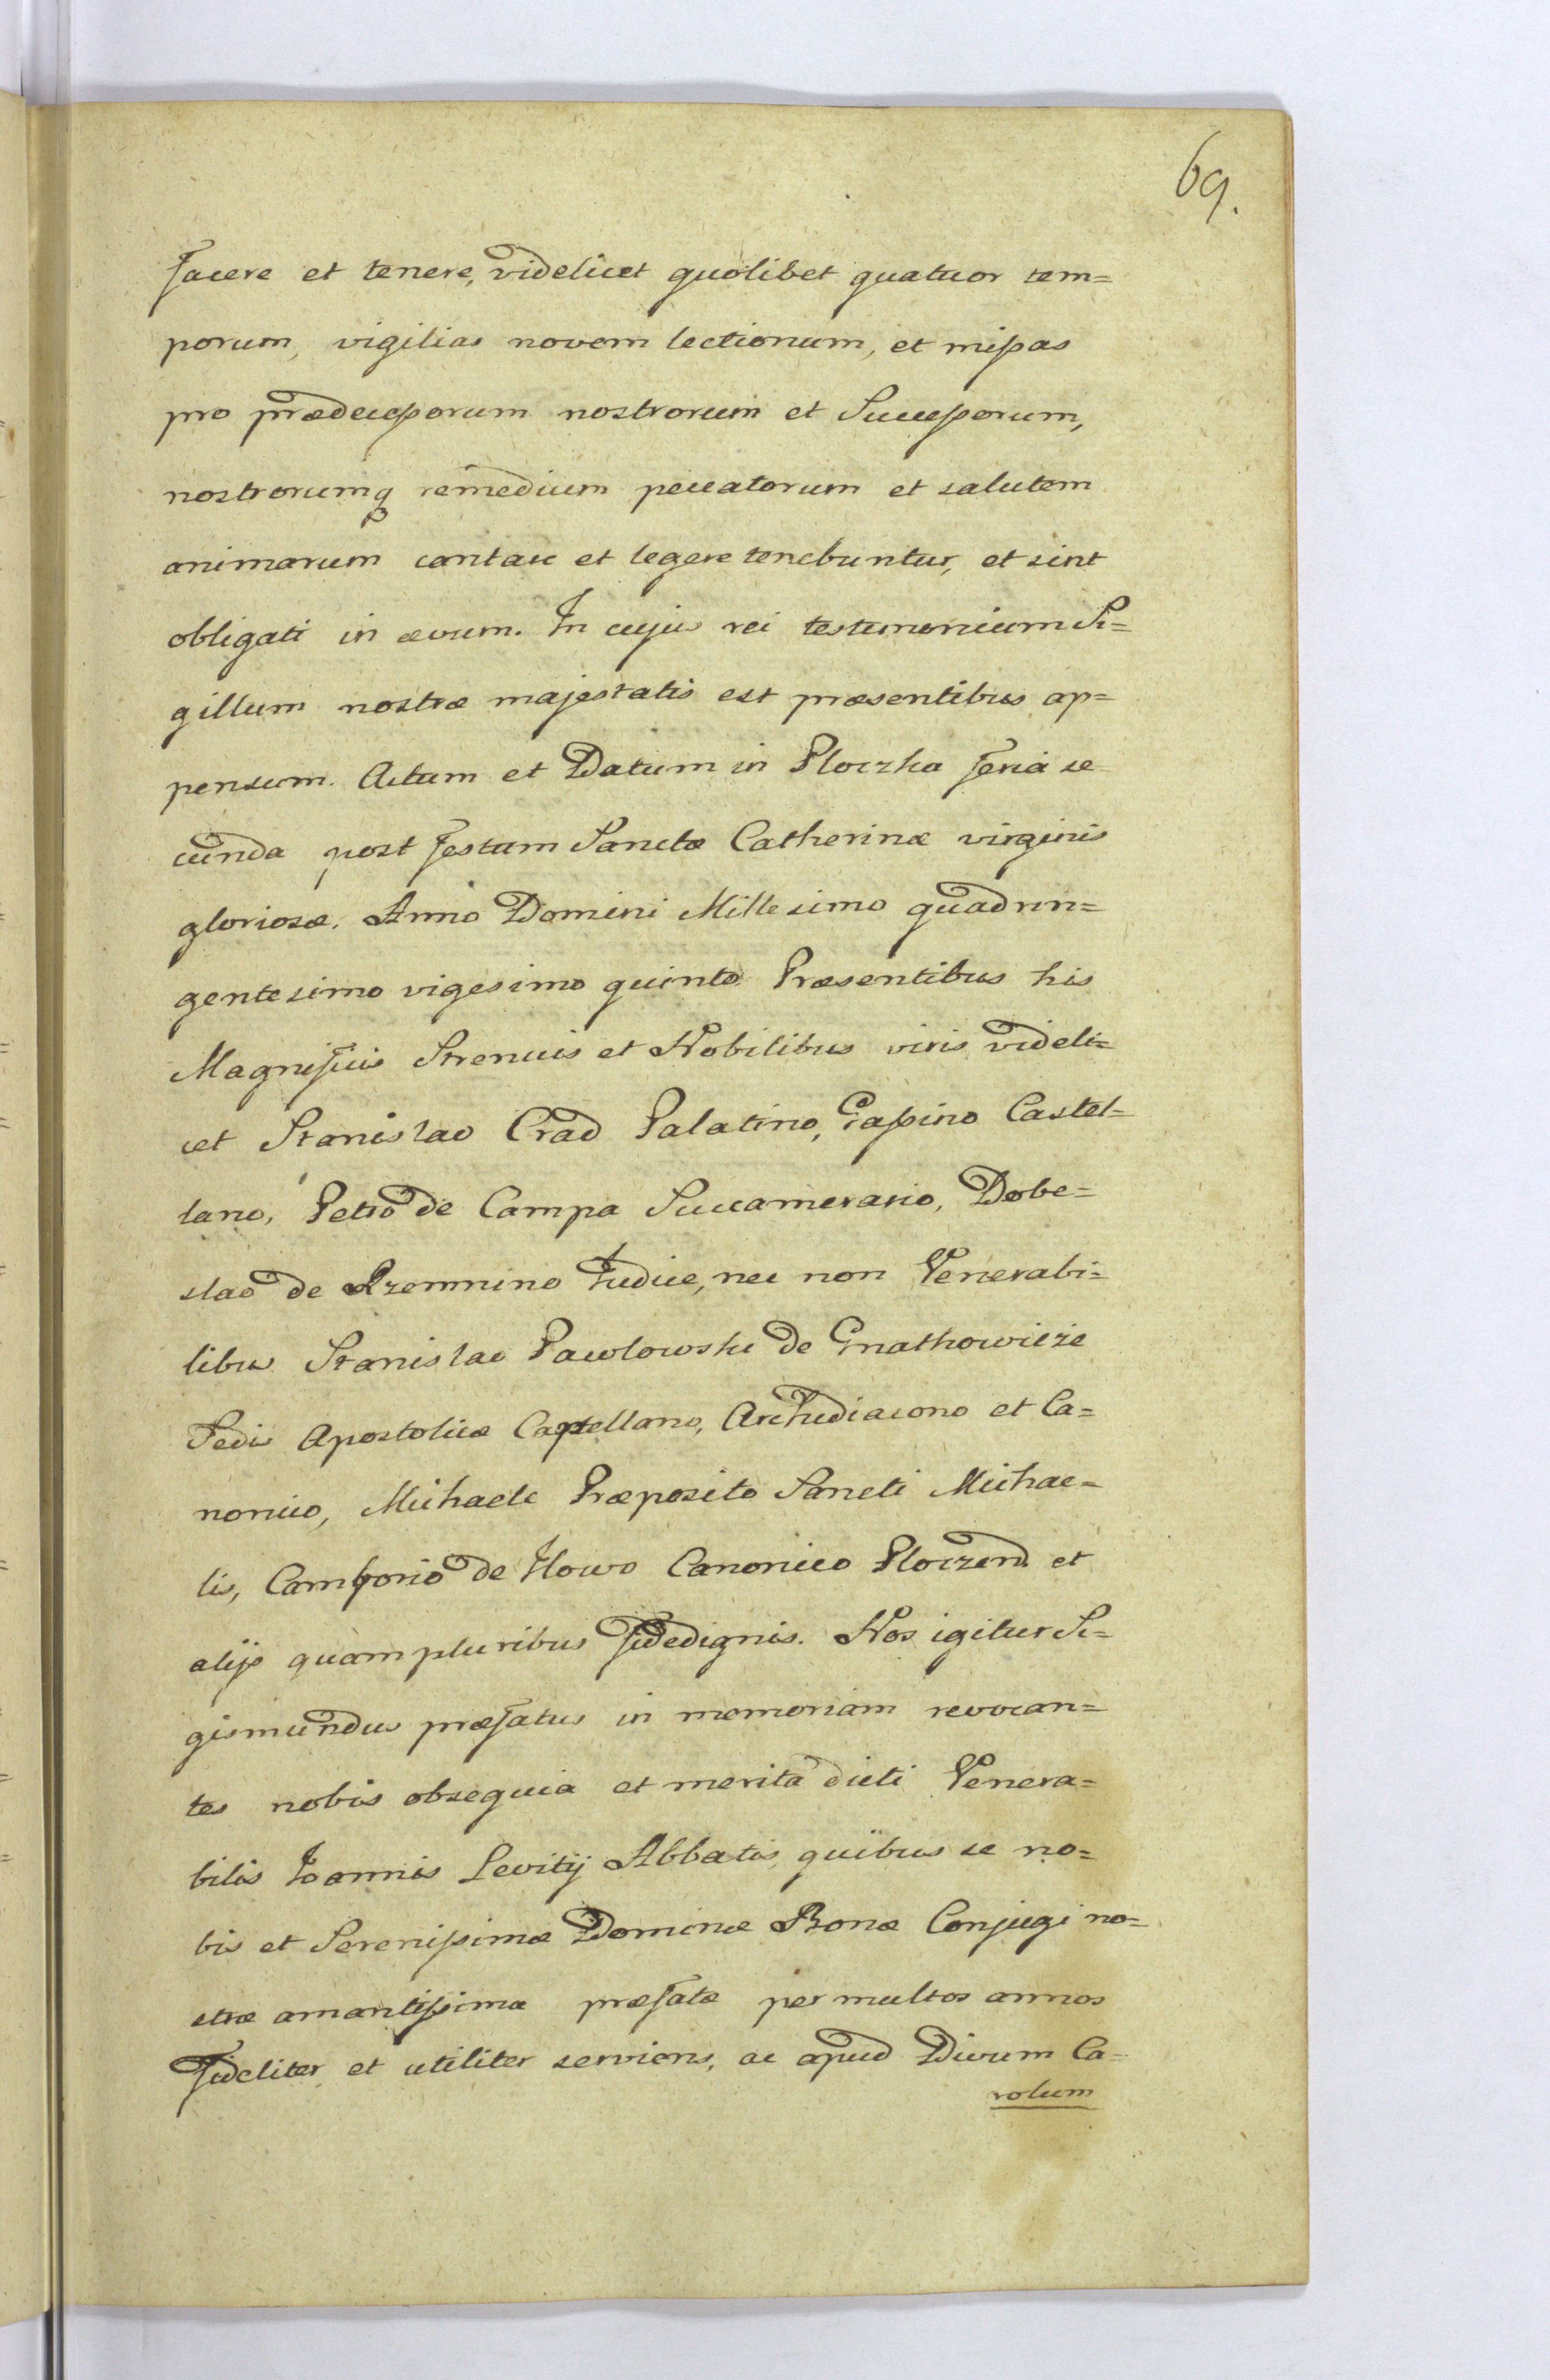 69.
facere et tenere, videlicet quolibet quatuor tem=
porum, vigilias novem lectionum, et missas
pro prædecessorum nostrorum et Successorum,
nostrorumq remedium peccatorum et salutem
animarum cantare et legere tenebuntur, et sint
obligati in ævum. In cujus rei testimonium Si=
gillum nostræ majestatis est præsentibus ap=
pensum. Actum et Datum in Ploczka feria se
cunda post festum Sanctæ Catherinæ virginis
gloriosæ. Anno Domini Millesimo quadrin=
gentesimo vigesimo quinto. Præsentibus his
Magnificis Strenuis et Nobilibus viris videli=
cet Stanislao Crad Palatino, Gassino Castel=
lano, Petro de Campa Succamerario, Dobe=
slao de Kzemnino Judice, nec non Venerabi=
libus Stanislao Pawlowski de Gnathowicze
Sedis Apostolicæ Capellano, Archidiacono et Ca=
nonico, Michaele Præposito Sancti Michae=
lis, Camborio de Ilowo Canonico Ploczend. et
alijs quampluribus fidedignis. Nos igitur Si=
gismundus præfatus in memoriam revocan=
tes nobis obsequia et merita dicti Venera=
bilis Joannis Levitij Abbatis, quibus se no=
bis et Serenissimæ Dominæ Bonæ Conjugi no=
stræ amantissimæ præfatæ per multos annos
Fideliter et utiliter serviens, ac apud Divum Ca=
rolum